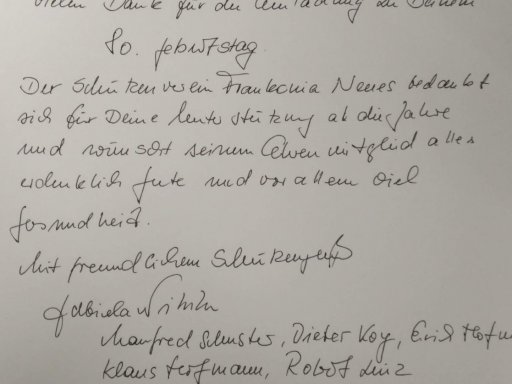 Vielen Dank für die Einladung zu Deinem
80. Geburtstag.
Der Schützenverein Frankonia Neuses bedankt
sich für Deine Unterstützung all die Jahre
und wünscht seinem Ehrenmitglied alles
erdenklich Gute und vor allem viel
Gesundheit.
Mit freundlichem Schützengruß
Gabriela
Manfred Schuster, Dieter Koy, Erich
Klaus Hofmann, Robert Linz